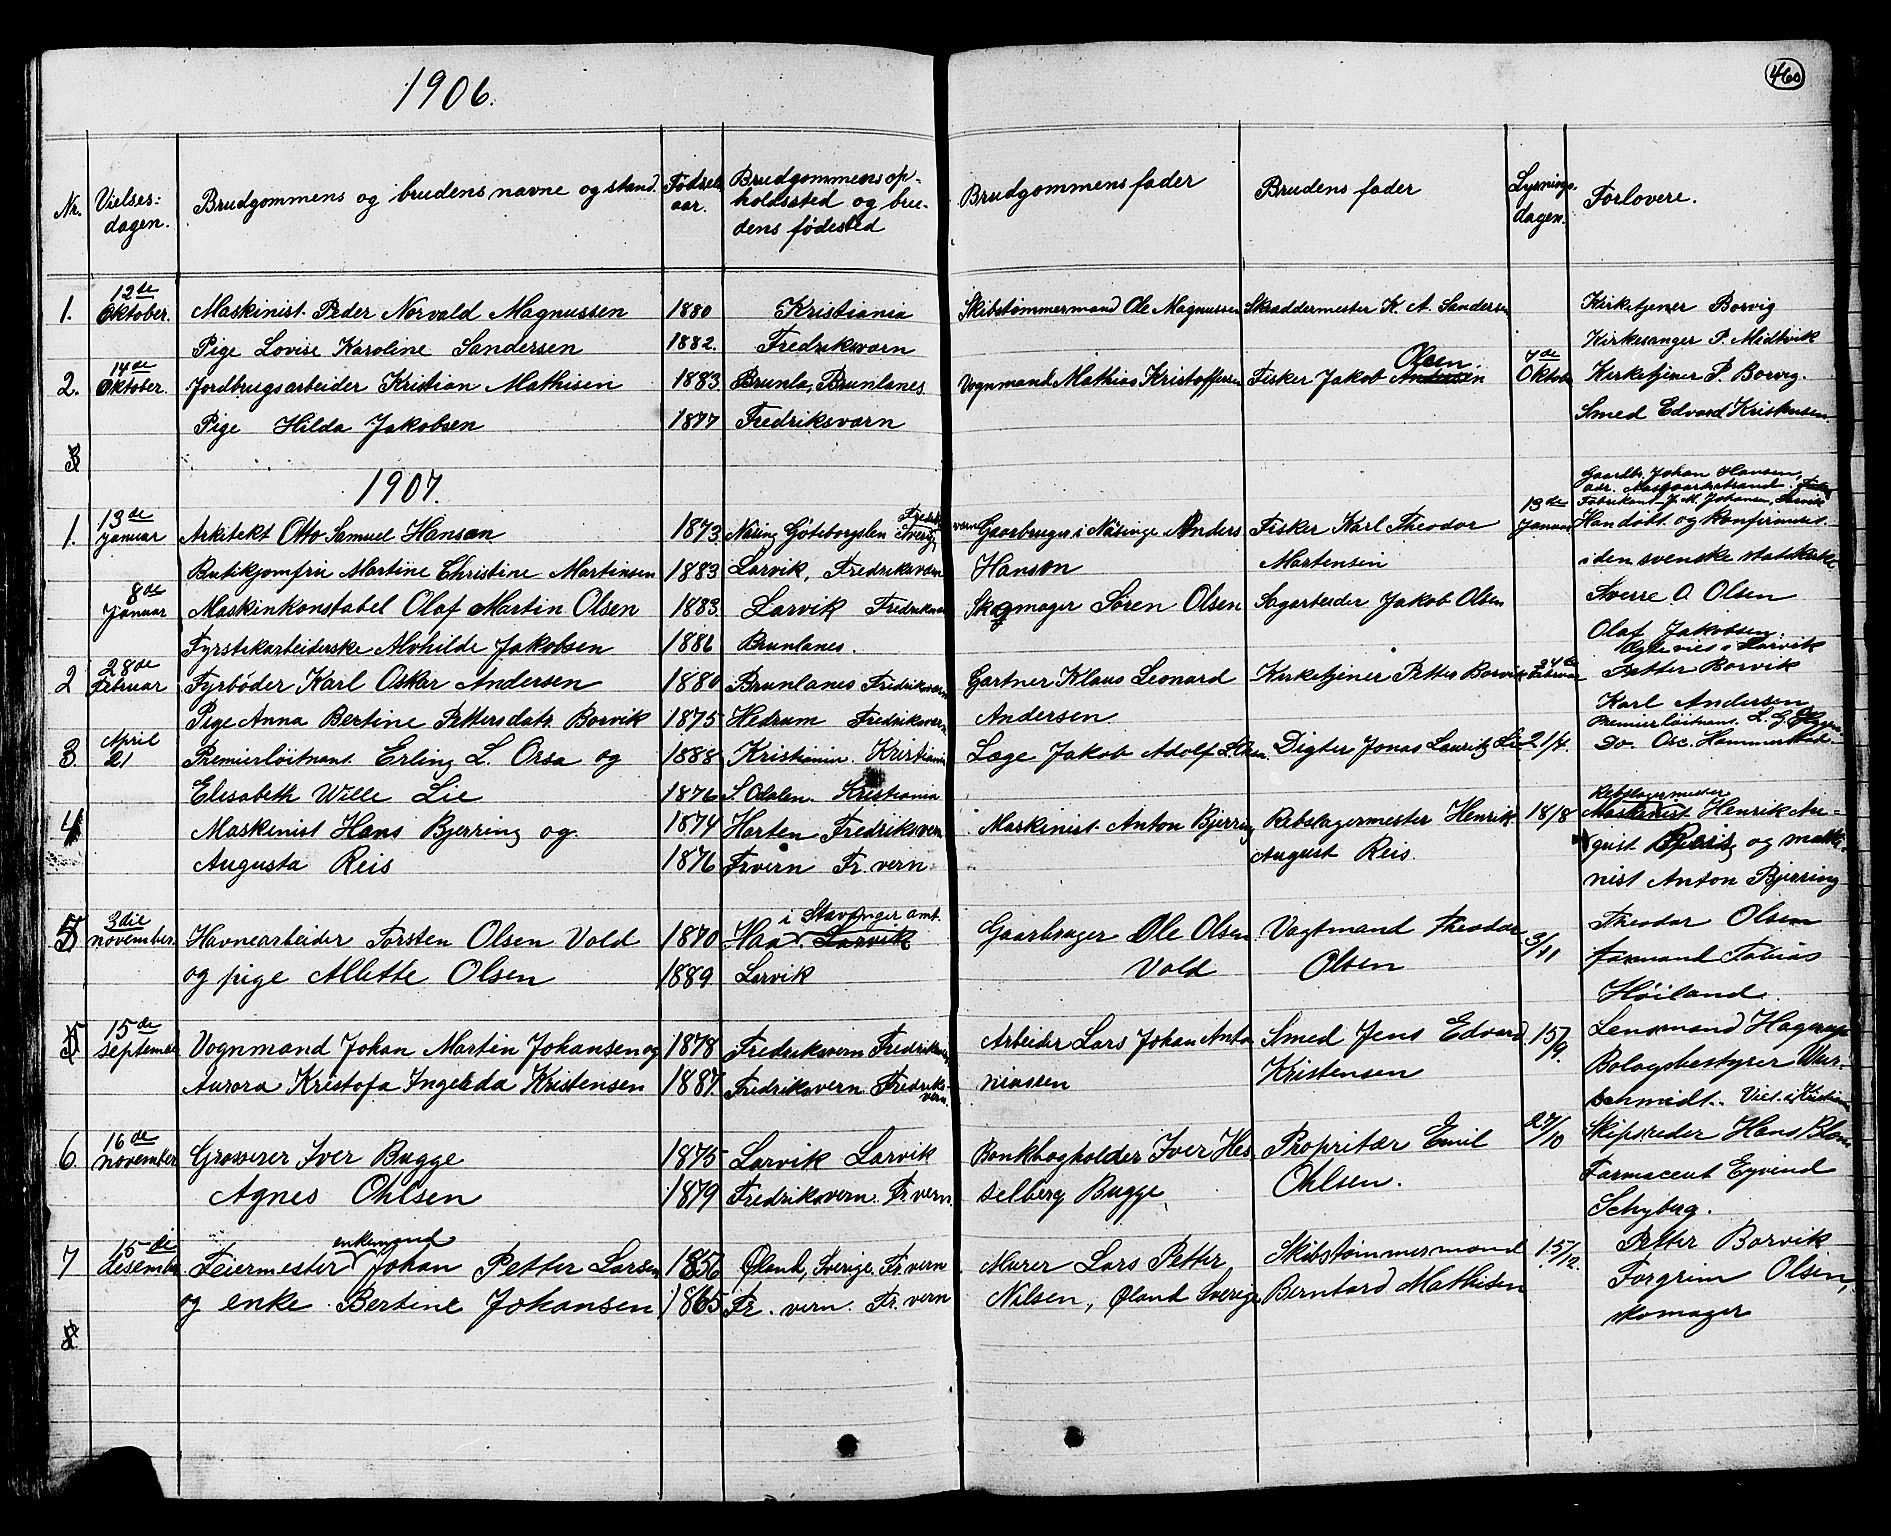 1906.
460
Nr. Vielses- dagen. Brudgommens og brudens navne og stand. Fødsels aar. Brudgommens op- holdssted og bru- dens fødested Brudgommens fader Brudens fader Lysnings- dagen. Forlovere.
1. 12de Oktober. Maskinist Peder Norvald Magnussen 1880 Kristiania Skibstømmermand Ole Magnussen Skraddermester K. A. Sandersen Kirketjener Borvig
Pige Lovise Karoline Sandersen 1882. Fredriksvarn Kirkesanger P. Midtvik
2. 14de Oktober. Jordbrugsarbeider Kristian Mathisen 1883 Brunla, Brunlanes Vognmand Mathias Kristoffersen Fisker Jakob Andersen Olsen 7de Oktob Kirketjener P. Borvig.
Pige Hilda Jakobsen 1877 Fredriksvarn Smed Edvard Kristensen.
3
1907.
Gaardbr. Johan Hansen
adr. Aasgaardstrand.
Fabrikant J. M. Johansen,
1. 13de Januar Arkitekt Otto Samuel Hanson 1873 Näsing Göteborgslen Sverig Fredriksvern Gaarbruger i Näsinge Anders Fisker Karl Theodor 13de Januar Han døbt og konfirmert
Butikjomfru Martine Christine Martinsen 1883 Larvik, Fredriksvarn Hanson Martensen i den svenske statskirke
8de Januar Maskinkonstabel Olaf Martin Olsen 1883 Larvik Fredriksvern Skomager Søren Olsen Sagarbeider Jakob Olsen Sverre O. Olsen
Fyrstikarbeiderske Alvhilde Jakobsen 1886 Brunlanes. Olaf Jakobsen.
Ægtevies i Larvik
2 28de Februar Fyrbøder Karl Oskar Andersen 1880 Brunlanes Fredriksvern Gartner Klaus Leonard Kirketjener Petter Borvik 24de Februar Petter Borvik
Pige Anna Bertine Pettersdatr. Borvik 1875 Hedrum Fredriksvern Andersen Karl Andersen
3 April 21 Premierløitnant Erling L. Orsa og 1888 Kristiania. Kristiania Læge Jakob Adolf Digter Jonas Lauritz Lie 21/4. Premierløitnant L. G.
Do. Osc. Hammerstad
Elisabeth Wille Lie 1876 S. Odalen. Kristiania
4 Maskinist Hans Bjerring og 1874 Horten Fredriksvern Maskinist Anton Bjerring Rebslagermester Henrik 18/8 Rebslagermeder Maskinist Henrik Au-
Augusta Reis 1876 Fr.vern Fr. vern August Reis. gust Reis og maski-
nist Anton Bjerring
5 3die november. Havnearbeider Torsten Olsen Vold 1870 Haa i Stavanger amt. Larvik Gaarbruger Ole Olsen Vagtmand Theodor 3/11 Theodor Olsen
og pige Allette Olsen 1889 Larvik Vold Olsen formand Tobias
Høiland.
5 15de september Vognmand Johan Martin Johansen og 1878 Fredriksvern Fredriksvern Arbeider Lars Johan Anto Smed Jens Edvard 15/9. Lensmand Hagerup
Aurora Kristofa Ingerda Kristensen 1887. Fredriksvern Fredriks- vern. niassen Kristensen Bologsbestyrer Wur-
schmidt. Viet i Kristiania
6 16de november Grosserer Iver Bugge 1875 Larvik Larvik Bankbogholder Iver Hes Propritær Emil 27/10 Skipsreder Hans Blom
Agnes Ohlsen 1879 Fredriksvern. Fr. vern. selberg Bugge Ohlsen. Farmaceut Ejvind
Schyberg.
7 15de desember Feiermester enkemand Johan Petter Larsen 1856 Øland, Sverige. Fr. vern Murer Lars Petter Skibstømmermand 15/12. Petter Borvik
og enke Bertine Johansen 1865 Fr. vern. Fr. vern Nilsen, Øland Sverige Berntard Mathisen Torgrim Olsen,
skomager
8